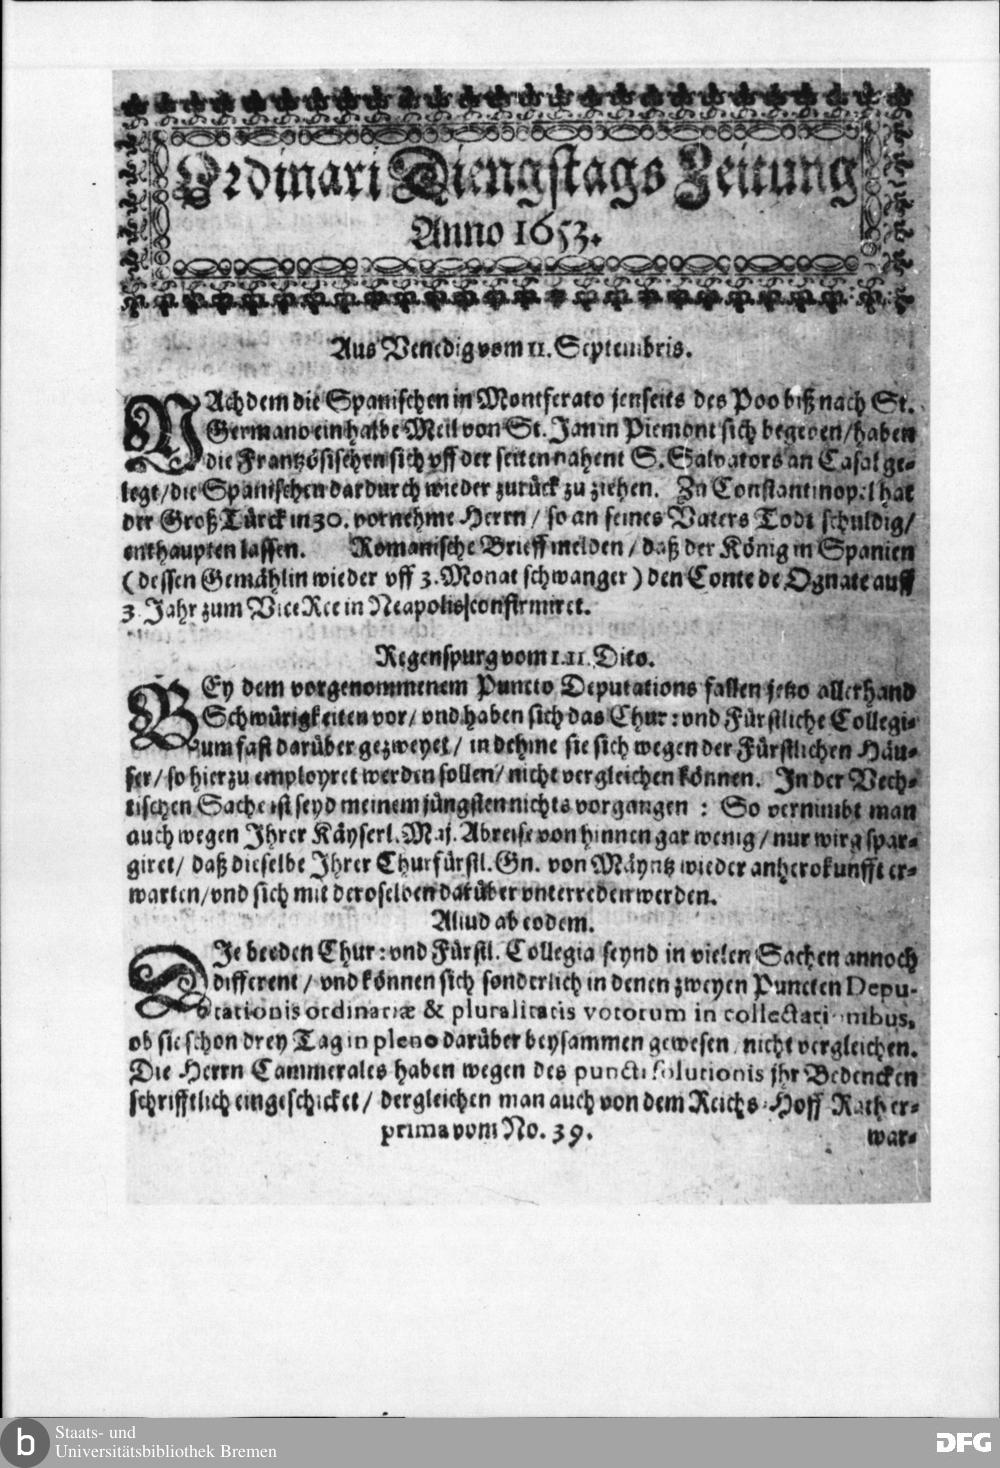 Ordinari Diengstags Zeitung
Anno 1653.
Aus Venedig vom 11. Septembris.
NAchdem die Spanischen in Montferato jenseits des Poo biß nach St.
Germano ein halbe Meil von St. Jan in Piemont sich begeben/haben
die Frantzösischen sich vff der seiten nahent S. Salvators an Casal ge-
legt/die Spanischen dardurch wieder zurück zu ziehen. Zu Constantinopel hat
der Groß Türck in 30. vornehme Herrn/ so an seines Vaters Todt schuldig/
enthaupten lassen. Romanische Brieff melden/ daß der König in Spanien
(dessen Gemählin wieder vff 3. Monat schwanger) den Conte de Ognate auff
3. Jahr zum Vice Ree in Neapolis confirmiret.
Regenspurg vom 1.11. Dito.
BEy dem vorgenommenem Puncto Deputations fallen jetzo allerhand
Schwürigkeiten vor/ vnd haben sich das Chur: vnd Fürstliche Collegi-
um fast darüber gezweyet/ in dehme sie sich wegen der Fürstlichen Häu-
ser/ so hierzu employret werden sollen/ nicht vergleichen können. In der Vech-
tischen Sache ist seyd meinem jüngsten nichts vorgangen: So vernimbt man
auch wegen Ihrer Käyserl. Maj. Abreise von hinnen gar wenig/ nur wirg spar-
giret/ daß dieselbe Ihrer Churfürstl. Gn. von Mäyntz wieder anherokunfft er-
warten/vnd sich mit deroselben darüber vnterreden werden.
Aliud ab eodem.
DIe beeden Chur: vnd Fürstl. Collegia seynd in vielen Sachen annoch
different/ vnd können sich sonderlich in denen zweyen Puncten Depu-
tationis ordinariæ & pluralitatis votorum in collectationibus,
ob sie schon drey Tag in pleno darüber beysammen gewesen, nicht vergleichen.
Die Herrn Cammerales haben wegen des puncti solutionis jhr Bedencken
schrifftlich eingeschicket/ dergleichen man auch von dem Reichs-Hoff-Rath er-
prima vom No. 39. war-
b Staats- und
Universitätsbibliothek Bremen
DFG